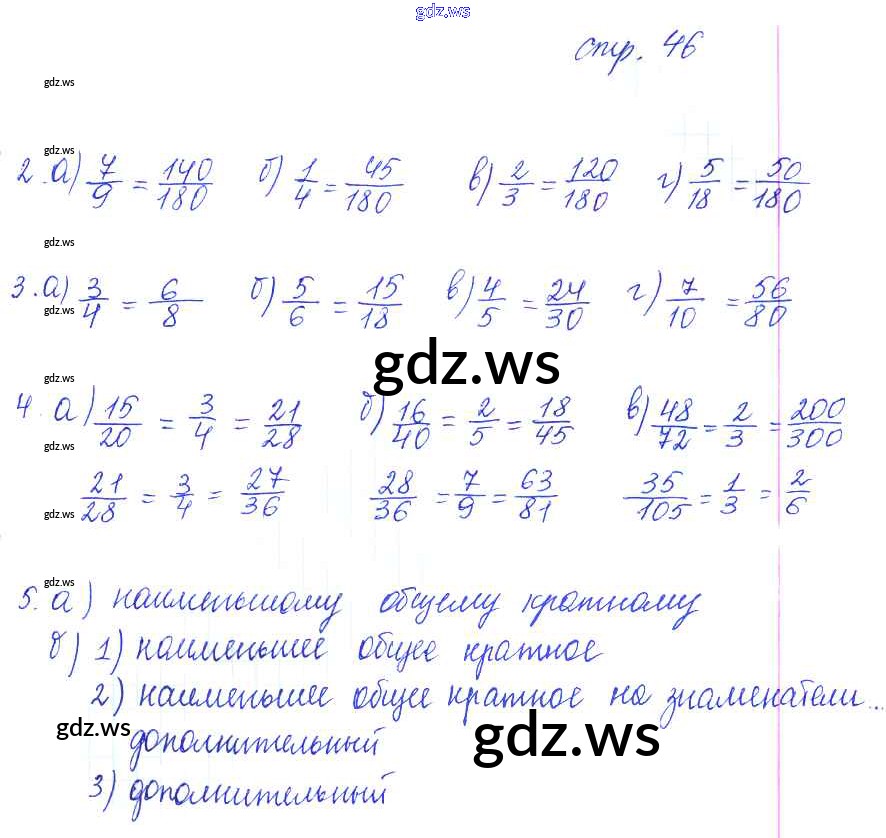 gdz.ws
стр. 46
gdz.ws
gdz.ws
2. а) 7/9 = 140/180 б) 1/4 = 45/180 в) 2/3 = 120/180 г) 5/18 = 50/180
gdz.ws
3. а) 3/4 = 6/8 б) 5/6 = 15/18 в) 4/5 = 24/30 г) 7/10 = 56/80
gdz.ws
gdz.ws
gdz.ws
4. а) 15/20 = 3/4 = 21/28 б) 16/40 = 2/5 = 18/45 в) 48/72 = 2/3 = 200/300
gdz.ws
21/28 = 3/4 = 27/36 28/36 = 7/9 = 63/81 35/105 = 1/3 = 2/6
gdz.ws
gdz.ws
5. а) наименьшому общему кратному
б) 1) наименьшее общее кратное
2) наименьшее общее кратное на знаменатели...
gdz.ws
gdz.ws
дополнительный
3) дополнительный